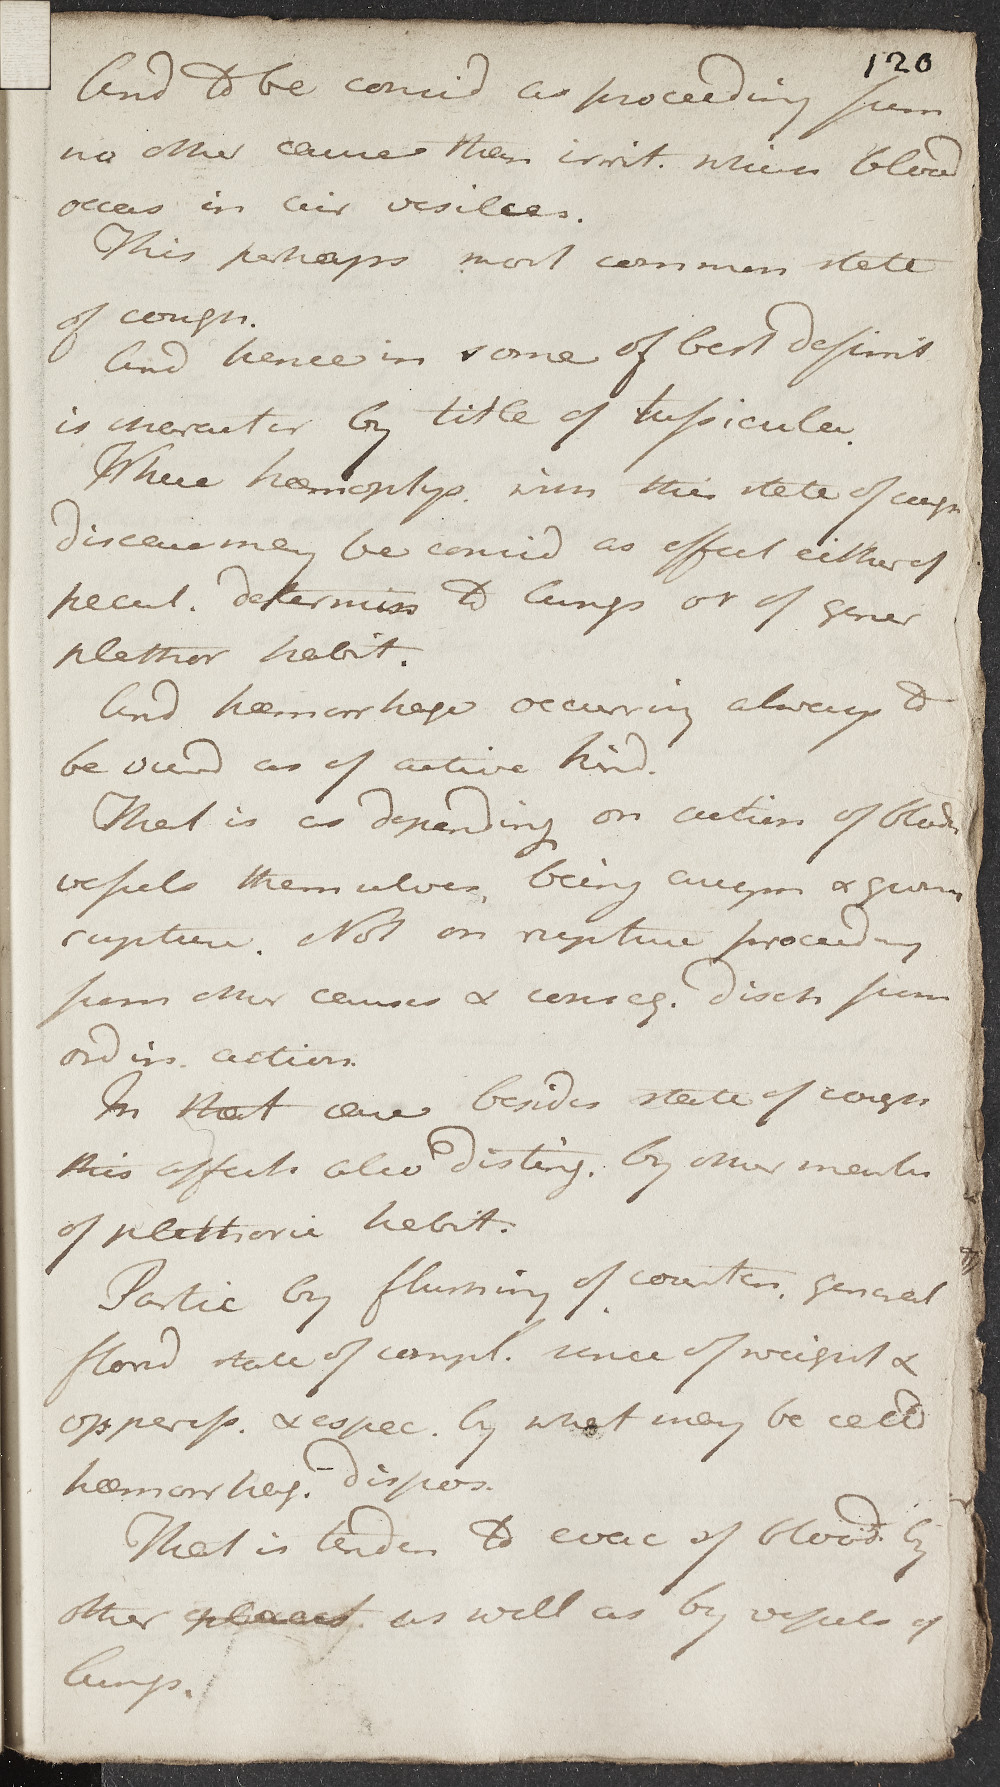 120
And to be consid as proceeding from
no other cause than irrit. which blood
occas in air vesilces.
This perhaps most common state
of cough.
And hence in some of best definit
is character by title of tussicula.
Where hæmoptys. with this state of cough
disease may be consid as effect either of
pecul. determin to lungs or of gener
plethor habit.
And hæmorrhage occurring always to
be viewd as of active kind.
That is as depending on action of blood
vessels themselves, being augm &
rupture. Not on rupture proceeding
from other causes & conseq. disch from
ordin. action.
In that case besides state of cough
this affect also disting. by other marks
of plethoric habit.
Partic by flushing of counten. general
florid state of compl. sence of weight &
oppress. & espec. by what may be calld
hæmorrhag. dispos.
That is tenden to evac of blood by
other places as well as by vessels of
lungs.